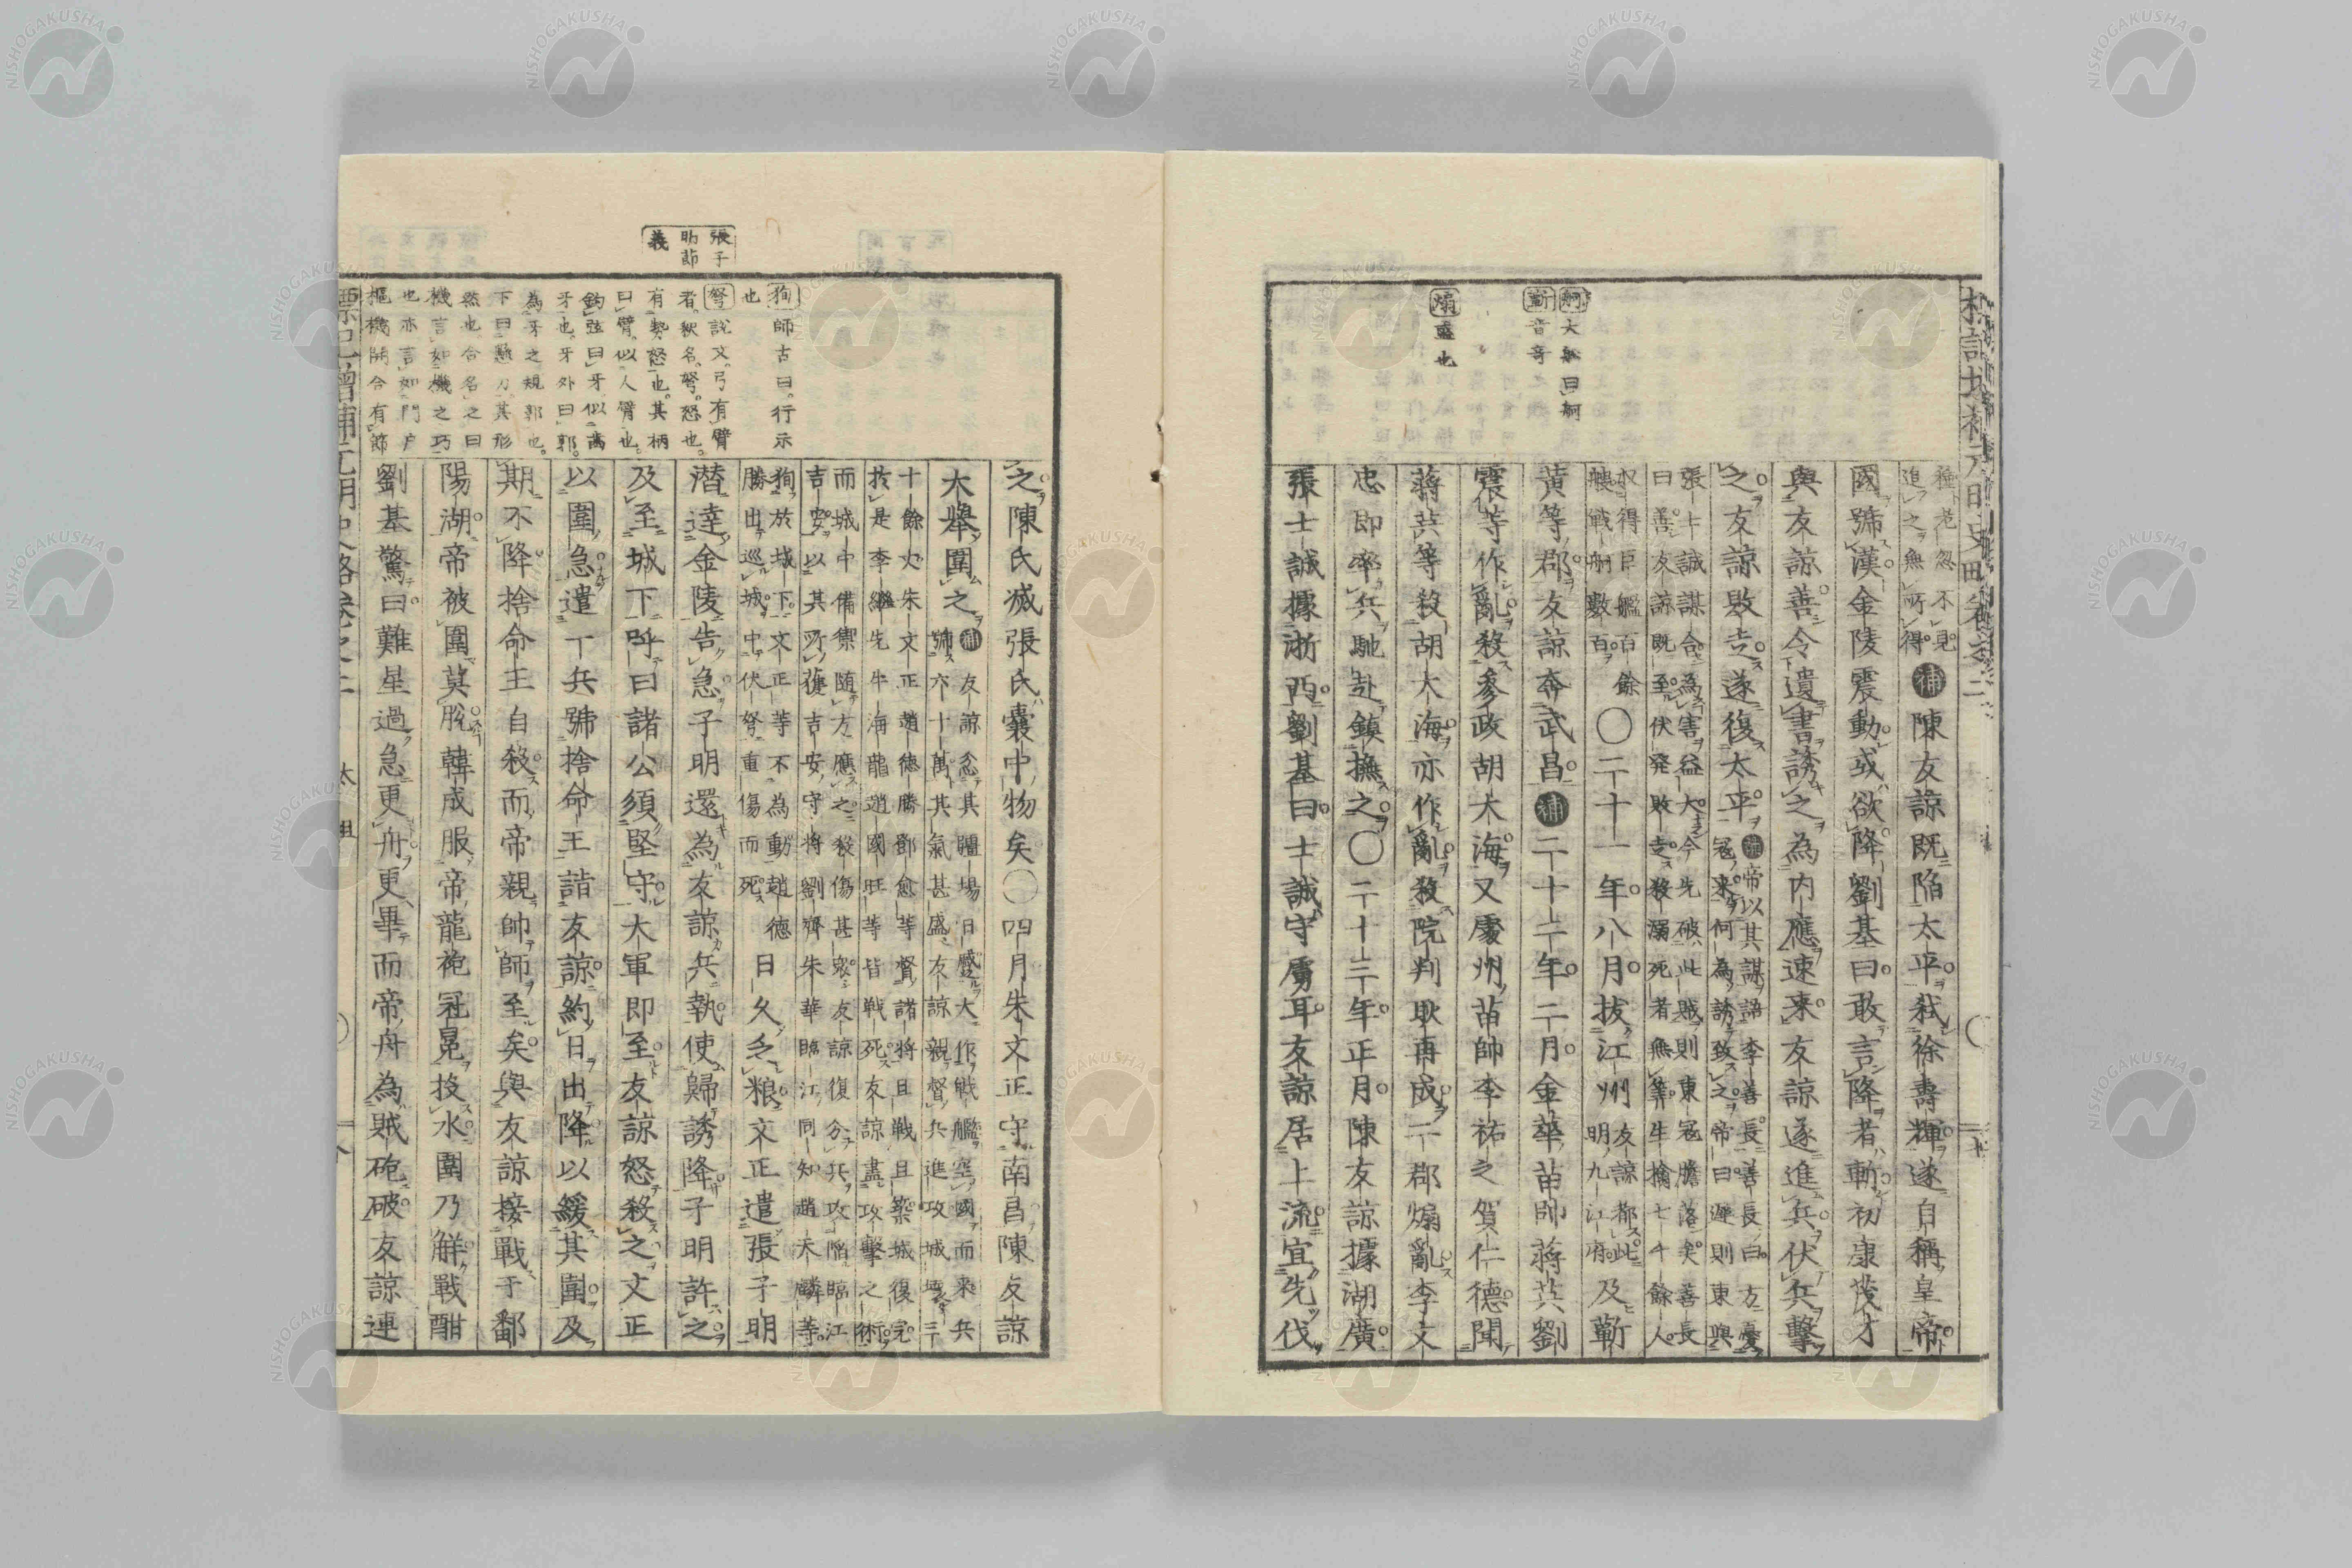 種老忽不見
追之無所得
補 陳友諒既陷太平弑徐壽輝遂自稱皇帝
國號漢金陵震動或欲降劉基曰敢言降者斬初康茂才
與友諒善令遺書誘之為内應速来友諒遂進兵伏兵擊
之友諒敗走遂復太平
補 帝以其謀語李善長善長曰方憂
冦来何為誘致之帝曰遲則東與
張士誠謀合為害益大今先破此賊則東冦膽落矣善長
曰善友諒既至伏発敗走殺溺死者無筭生擒七千餘人
収得巨艦百餘
艘戦舸數百
〇二十一年八月抜江州
友諒都此
明九江府
及蘄
黃等郡友諒奔武昌 補 二十二年二月金華苗帥蔣英劉
震等作亂殺參政胡大海又處州苗帥李祐之賀仁德聞
蔣英等殺胡大海亦作亂殺院判耿再成二郡煽亂李文
忠即率兵馳赴鎮撫之〇二十三年正月陳友諒據湖廣
張士誠據浙西劉基曰士誠守虜耳友諒居上流宜先伐
舸 大船曰舸
蘄 音竒
煽 盛也
之陳氏滅張氏囊中物矣〇四月朱文正守南昌陳友諒
大舉圍之
補 友諒忿其疆埸日蹙大作戦艦空國而来兵
號六十萬其氣甚盛友諒親督兵進攻城壊三
十餘丈朱文正趙德勝鄧愈等督諸将且戦且築城復完
於是李繼先牛海龍趙國旺等皆戦死友諒盡攻擊之術
而城中備禦随方應之殺傷甚衆友諒復分兵攻陷臨江
吉安以其所獲吉安守将劉齊朱華臨江同知趙天麟等
狥於城下文正等不為動趙德
勝出巡城中伏弩重傷而死
日久乏粮文正遣張子明
潜達金陵告急子明還為友諒兵執使歸誘降子明許之
及至城下呼曰諸公須堅守大軍即至友諒怒殺之文正
以圍急遣一兵號捨命王詣友諒約日出降以緩其圍及
期不降捨命王自殺而帝親帥師至矣與友諒接戰于鄱
陽湖帝被圍莫脫韓成服帝龍袍冠冕投水圍乃觧戰酣
劉基驚曰難星過急更舟更畢而帝舟為賊砲破友諒連
張子
明節
義
狥 師古曰行示
也
弩 說文弓有臂
者釈名弩怒也
有勢怒也其柄
曰臂似人臂也
鈎弦曰牙似齒
牙也牙外曰郭
為牙之規郭也
下曰懸刀其形
然也合名之曰
機言如機之巧
也亦言如門戶
樞機開合有節
太祖